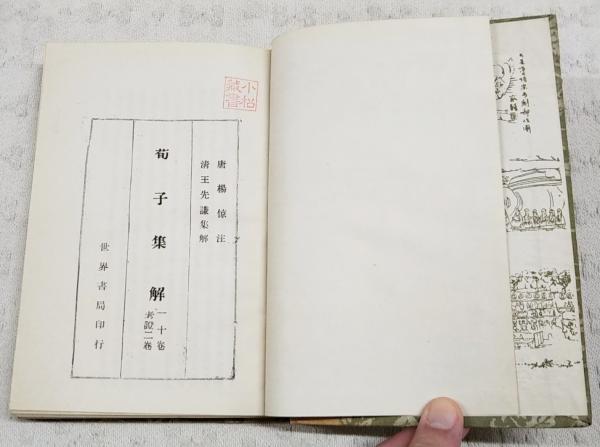 小嵒
藏書
唐楊倞注
清王先謙集解
荀子集解
二十卷
考證二卷
世界書局印行